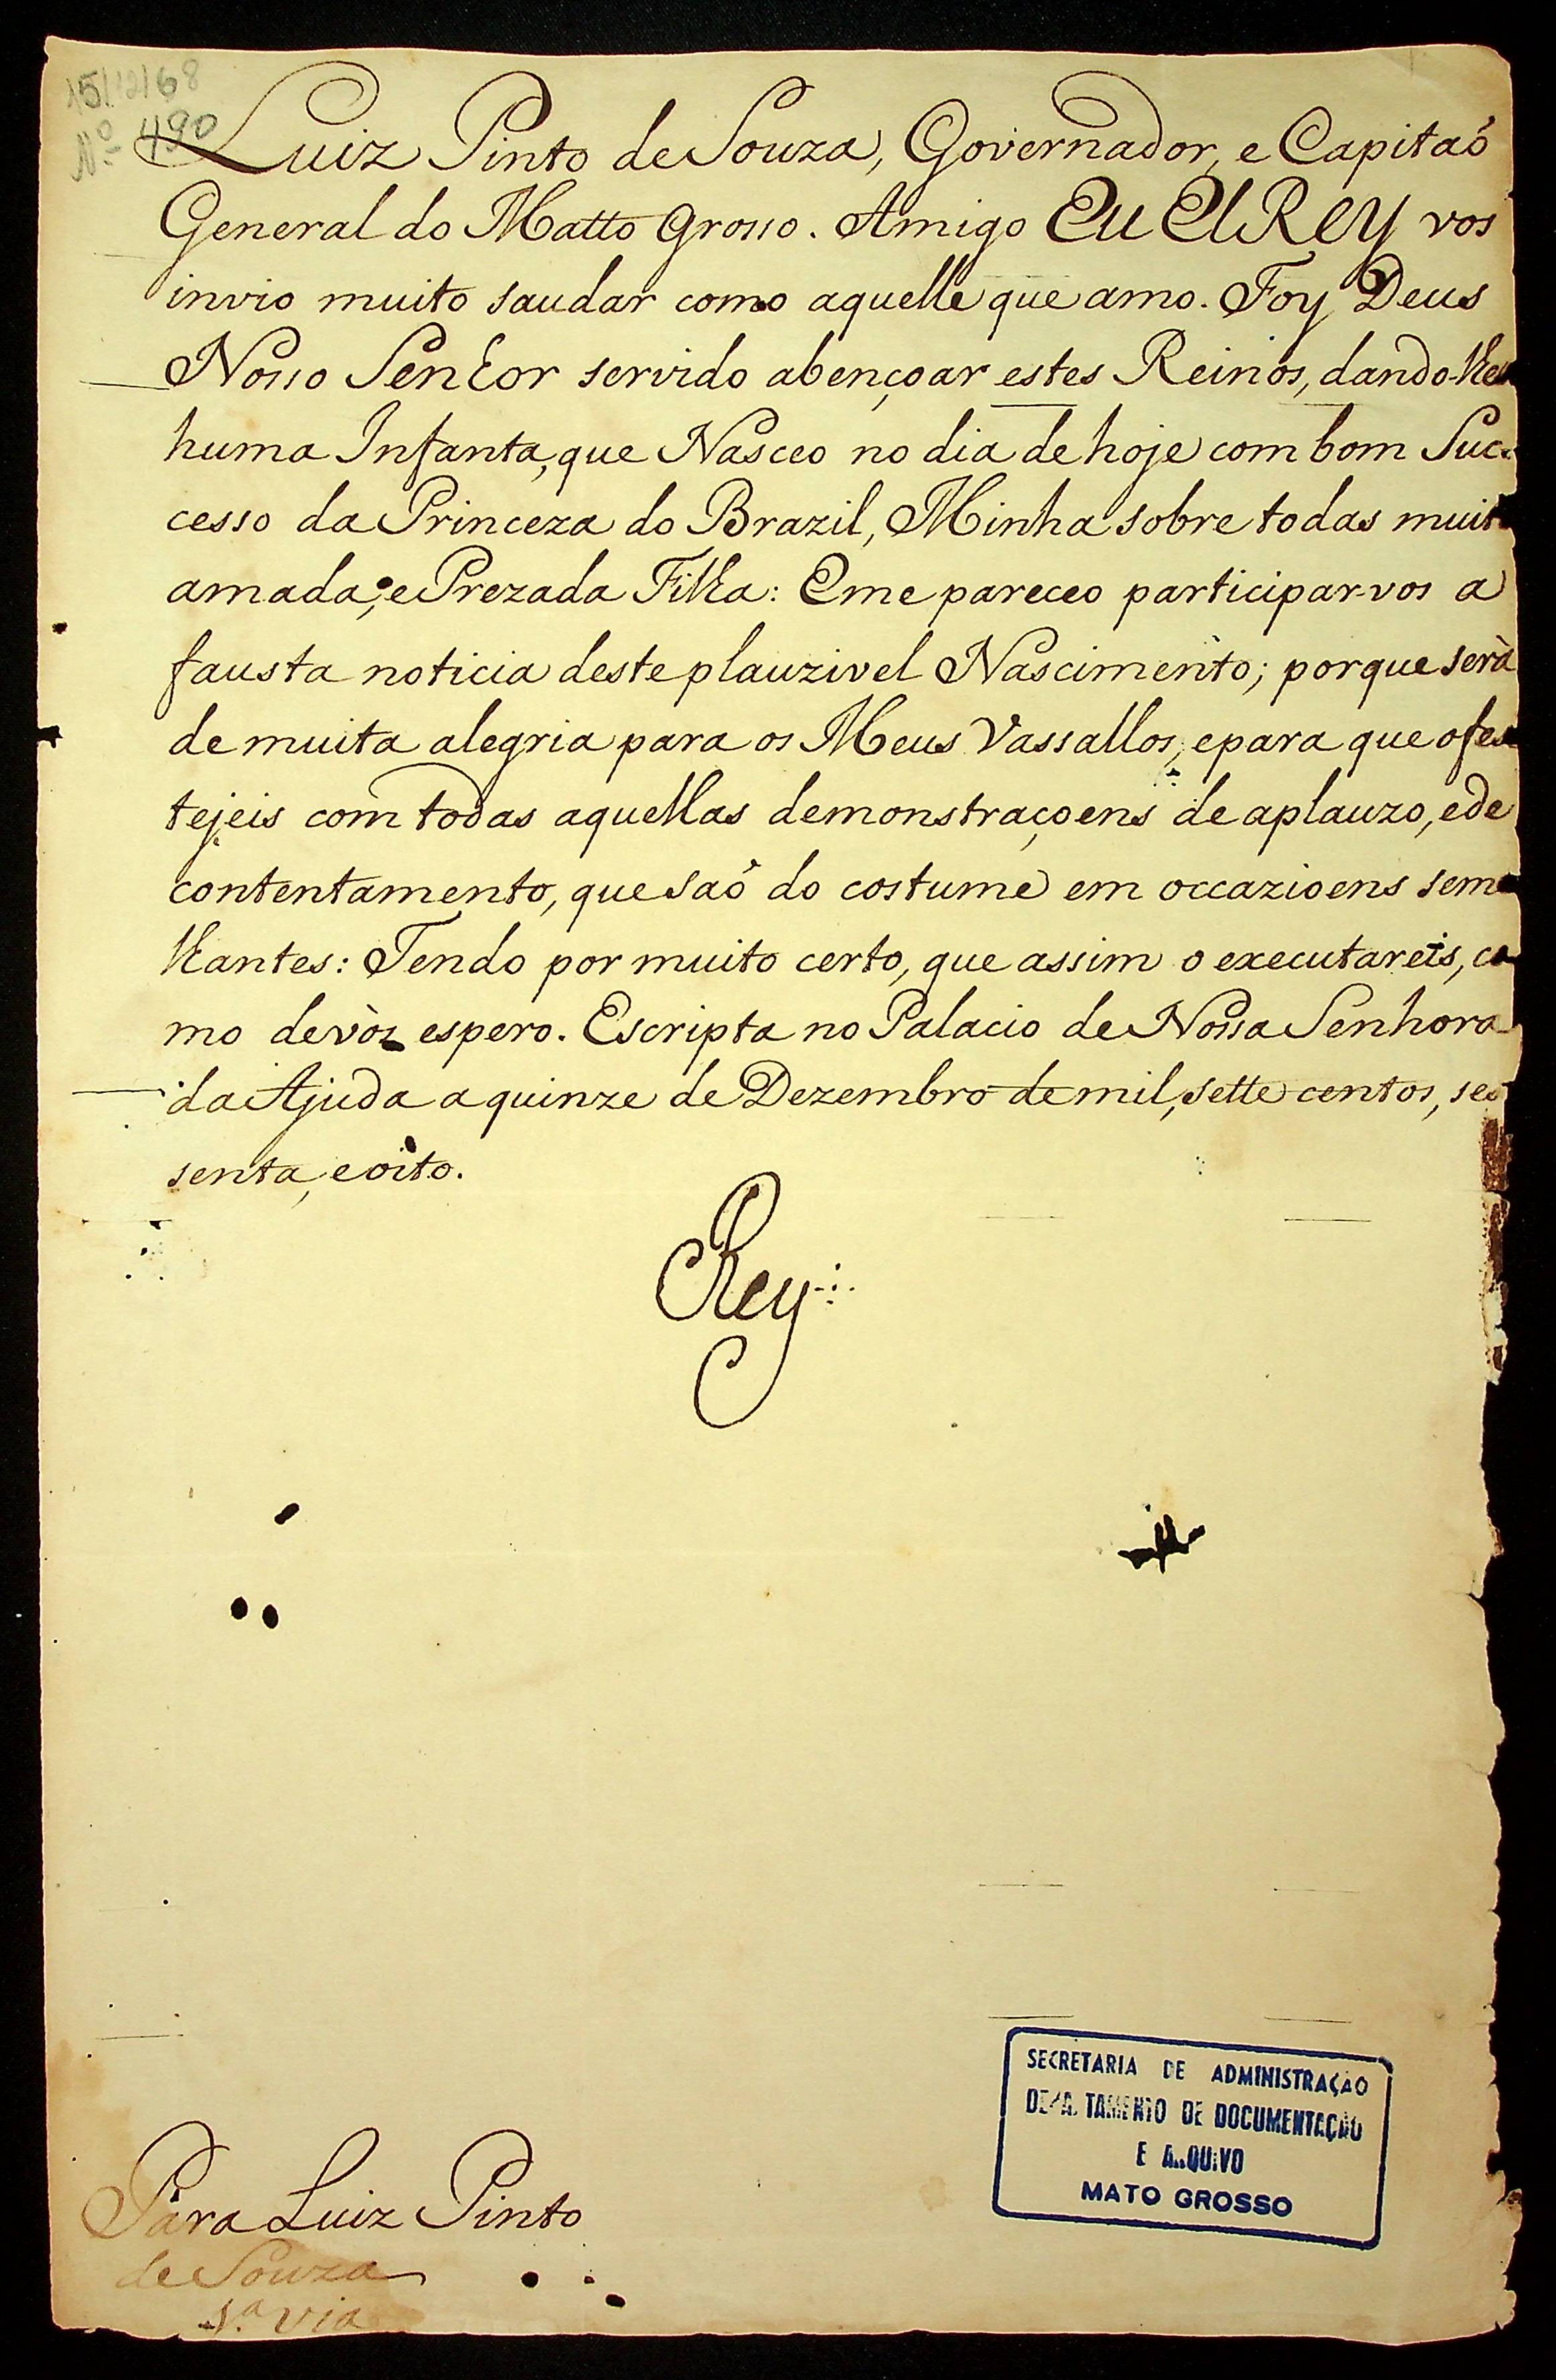 15/12/68
Nº 490
Luiz Pinto de Souza, Governador, e Capitaõ
General do Matto Grosso. Amigo Eu ElRey vos
invio muito saudar como aquelle que amo. Foy Deus
Nosso Senhor servido abençoar estes Reinos, dando-lhes
huma Infanta, que Nasceo no dia de hoje com bom Suc-
cesso da Princeza do Brazil, Minha sobre todas muito
amada, e Prezada Filha: E me pareceo participar-vos a
fausta noticia deste plauzivel Nascimento; porque serà
de muita alegria para os Meus Vassallos, e para que o fes
tejeis com todas aquellas demonstraçoens de aplauzo, e de
contentamento, que saõ do costume em occazioens seme
lhantes: Tendo por muito certo, que assim o executareis, co
mo de vòz espero. Escripta no Palacio de Nossa Senhora
da Ajuda a quinze de Dezembro de mil, sette centos, ses
senta, e oito.
Rey
Para Luiz Pinto
de Souza
1.ª via
SECRETARIA DE ADMINISTRAÇÃO
DEPARTAMENTO DE DOCUMENTAÇÃO
E ARQUIVO
MATO GROSSO